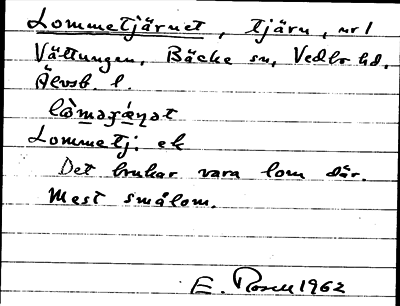 Lommetjärnet, tjärn, nr 1
Vättungen, Bäcke sn, Vedbo hd,
Älvsb. l.
Lommetj: ek
Det brukar vara lom där.
Mest smålom.
E. Rosell 1962